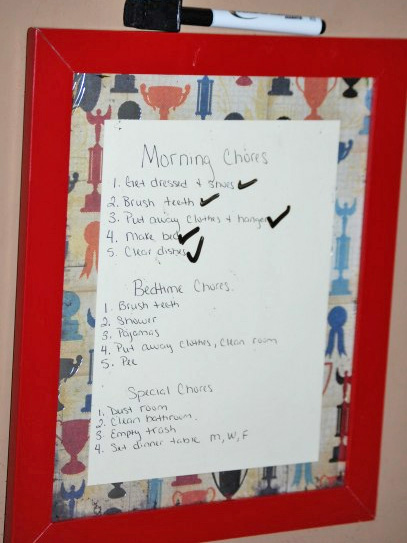 Morning Chores
1. Get dressed + shoes ✓
2. Brush teeth ✓
3. Put away clothes + hanger ✓
4. Make bed ✓
5. Clear dishes ✓
Bedtime Chores.
1. Brush teeth
2. Shower
3. Pajamas
4. Put away clothes, clean room
5. Pee
Special Chores
1. Dust room
2. Clean bathroom.
3. Empty trash
4. Set dinner table M, W, F